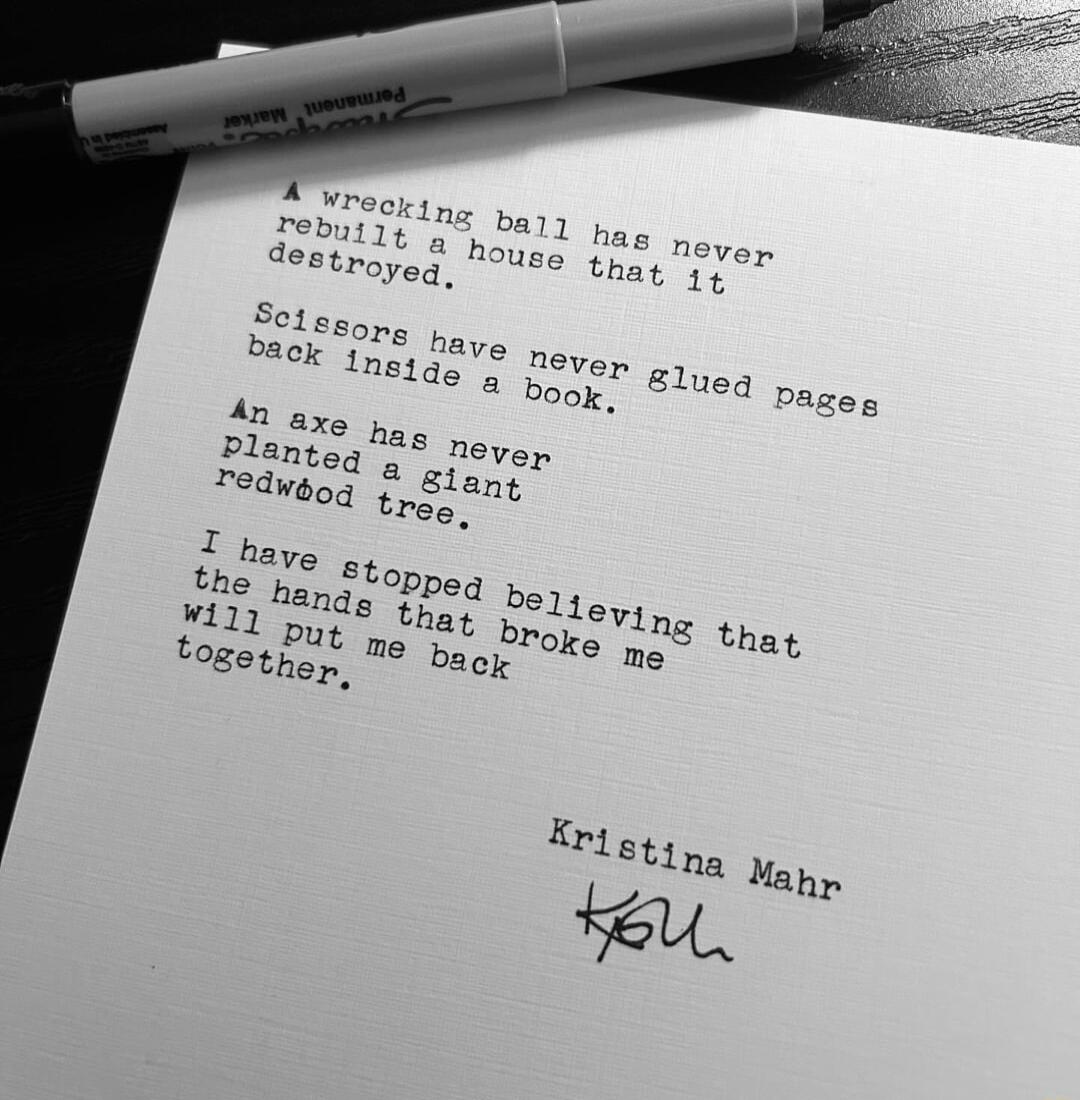 Permanent Marker
Sharpie.
A wrecking ball has never
rebuilt a house that it
destroyed.
Scissors have never glued pages
back inside a book.
An axe has never
planted a giant
redwood tree.
I have stopped believing that
the hands that broke me
will put me back
together.
Kristina Mahr